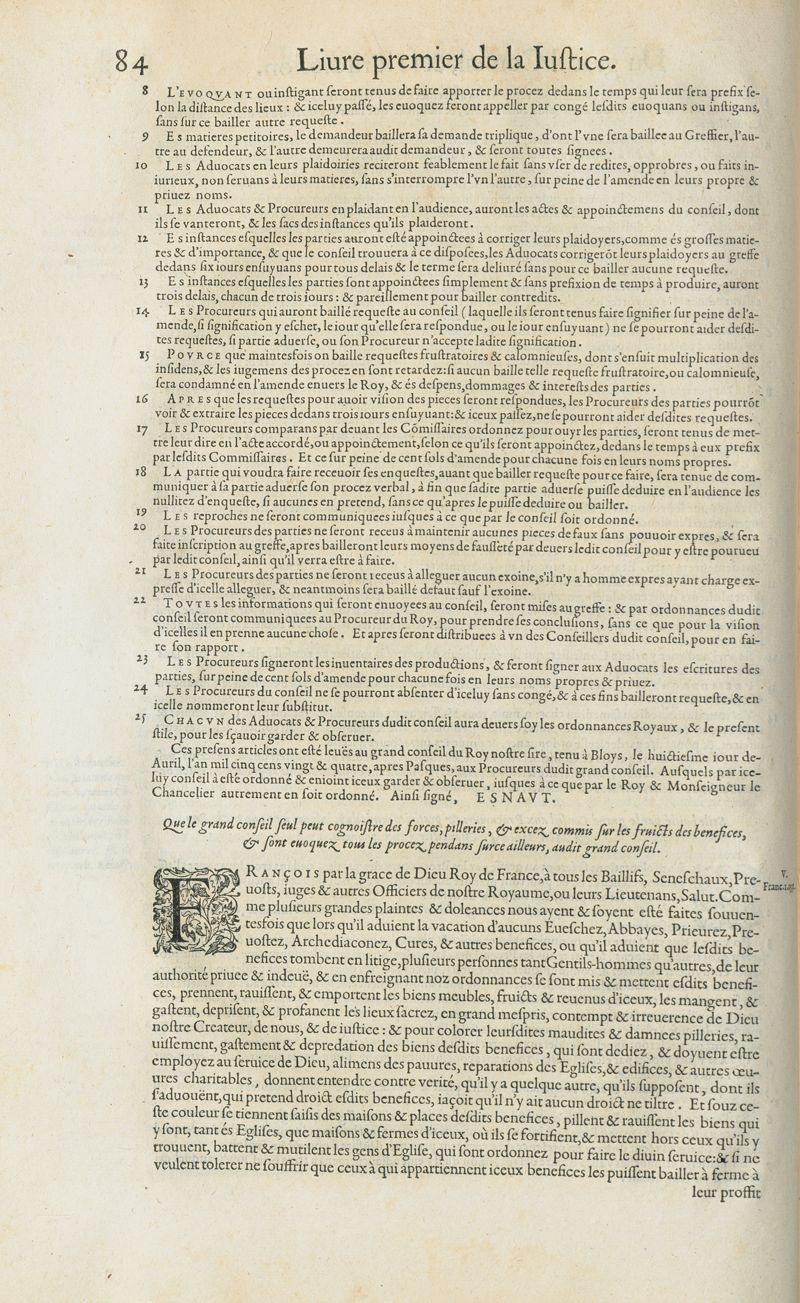 84 Liure premier de la Iuſtice.
8 L'EVOQVANT ou inſtigant ſeront tenus de faire apporter le procez dedans le temps qui leur ſera prefix ſe-
lon la diſtance des lieux : & iceluy paſſé, les euoquez feront appeller par congé leſdits euoquans ou inſtigans,
ſans ſur ce bailler autre requeſte .
9 ES matieres petitoires, le demandeur baillera ſa demande triplique, d'ont l'vne ſera baillee au Greffier, l'au-
tre au defendeur, & l'autre demeurera audit demandeur, & ſeront toutes ſignees .
10 LES Aduocats en leurs plaidoiries reciteront feablement le fait ſans vſer de redites, opprobres, ou faits in-
iurieux, non ſeruans à leurs matieres, ſans s'interrompre l'vn l'autre, ſur peine de l'amende en leurs propre &
priuez noms.
11 LES Aduocats & Procureurs en plaidant en l'audience, auront les actes & appoinctemens du conſeil, dont
ils ſe vanteront, & les ſacs des inſtances qu'ils plaideront.
12 ES inſtances eſquelles les parties auront eſté appoinctees à corriger leurs plaidoyers,comme és groſſes matie-
res & d'importance, & que le conſeil trouuera à ce diſpoſees,les Aduocats corrigerōt leurs plaidoyers au greffe
dedans ſix iours enſuyuans pour tous delais & le terme ſera deliuré ſans pour ce bailler aucune requeſte.
13 ES inſtances eſquelles les parties ſont appoinctees ſimplement & ſans prefixion de temps à produire, auront
trois delais, chacun de trois iours : & pareillement pour bailler contredits.
14 LES Procureurs qui auront baillé requeſte au conſeil ( laquelle ils ſeront tenus faire ſignifier ſur peine de l'a-
mende,ſi ſignification y eſchet, le iour qu'elle ſera reſpondue, ou le iour enſuyuant ) ne ſe pourront aider deſdi-
tes requeſtes, ſi partie aduerſe, ou ſon Procureur n'accepte ladite ſignification .
15 POVRCE que maintesfois on baille requeſtes fruſtratoires & calomnieuſes, dont s'enſuit multiplication des
inſidens,& les iugemens des procez en ſont retardez:ſi aucun baille telle requeſte fruſtratoire,ou calomnieuſe,
ſera condamné en l'amende enuers le Roy, & és deſpens,dommages & intereſts des parties .
16 APRES que les requeſtes pour auoir viſion des pieces ſeront reſpondues, les Procureurs des parties pourrōt
voir & extraire les pieces dedans trois iours enſuyuant:& iceux paſſez,ne ſe pourront aider deſdites requeſtes.
17 LES Procureurs comparans par deuant les Cōmiſſaires ordonnez pour ouyr les parties, ſeront tenus de met-
tre leur dire en l'acte accordé,ou appoinctement,ſelon ce qu'ils ſeront appoinctez,dedans le temps à eux prefix
par leſdits Commiſſaires . Et ce ſur peine de cent ſols d'amende pour chacune fois en leurs noms propres.
18 LA partie qui voudra faire receuoir ſes enqueſtes,auant que bailler requeſte pour ce faire, ſera tenue de com-
muniquer à ſa partie aduerſe ſon procez verbal, à fin que ſadite partie aduerſe puiſſe deduire en l'audience les
nullitez d'enqueſte, ſi aucunes en pretend, ſans ce qu'apres le puiſſe deduire ou bailler.
19 LES reproches ne ſeront communiquees iuſques à ce que par le conſeil ſoit ordonné.
20 LES Procureurs des parties ne ſeront receus à maintenir aucunes pieces de faux ſans pouuoir expres, & ſera
faite inſcription au greffe,apres bailleront leurs moyens de fauſſeté par deuers ledit conſeil pour y eſtre pourueu
par ledit conſeil,ainſi qu'il verra eſtre à faire.
21 LES Procureurs des parties ne ſeront receus à alleguer aucun exoine,s'il n'y a homme expres ayant charge ex-
preſſe d'icelle alleguer, & neantmoins ſera baillé defaut ſauf l'exoine.
22 TOVTES les informations qui ſeront enuoyees au conſeil, ſeront miſes au greffe : & par ordonnances dudit
conſeil ſeront communiquees au Procureur du Roy, pour prendre ſes concluſions, ſans ce que pour la viſion
d'icelles il en prenne aucune choſe . Et apres ſeront diſtribuees à vn des Conſeillers dudit conſeil,pour en fai-
re ſon rapport .
23 LES Procureurs ſigneront les inuentaires des productions, & feront ſigner aux Aduocats les eſcritures des
parties, ſur peine de cent ſols d'amende pour chacune fois en leurs noms propres & priuez.
24 LES Procureurs du conſeil ne ſe pourront abſenter d'iceluy ſans congé,& à ces fins bailleront requeſte,& en
icelle nommeront leur ſubſtitut.
25 CHACVN des Aduocats & Procureurs dudit conſeil aura deuers ſoy les ordonnances Royaux, & le preſent
ſtile, pour les ſçauoir garder & obſeruer.
Ces preſens articles ont eſté leuës au grand conſeil du Roy noſtre ſire, tenu à Bloys, le huictieſme iour de-
Auril, l'an mil cinq cens vingt & quatre,apres Paſques,aux Procureurs dudit grand conſeil. Auſquels par ice-
luy conſeil a eſté ordonné & enioint iceux garder & obſeruer, iuſques à ce que par le Roy & Monſeigneur le
Chancelier autrement en ſoit ordonné. Ainſi ſigné, ESNAVT.
Que le grand conſeil ſeul peut cognoiſtre des forces, pilleries, & excez commis ſur les fruicts des benefices,
& ſont euoquez tous les procez pendans ſur ce ailleurs, audit grand conſeil.
FRANÇOIS par la grace de Dieu Roy de France,à tous les Baillifs, Seneſchaux,Pre-
uoſts, iuges & autres Officiers de noſtre Royaume,ou leurs Lieutenans,Salut.Com-
me pluſieurs grandes plaintes & doleances nous ayent & ſoyent eſté faites ſouuen-
tesfois que lors qu'il aduient la vacation d'aucuns Eueſchez, Abbayes, Prieurez,Pre-
uoſtez, Archediaconez, Cures, & autres benefices, ou qu'il aduient que leſdits be-
nefices tombent en litige,pluſieurs perſonnes tant Gentils-hommes qu'autres,de leur
authorité priuee & indeuë, & en enfreignant noz ordonnances ſe ſont mis & mettent eſdits benefi-
ces, prennent, rauiſſent, & emportent les biens meubles, fruicts & reuenus d'iceux, les mangent, &
gaſtent, depriſent, & profanent les lieux ſacrez, en grand meſpris, contempt & irreuerence de Dieu
noſtre Createur, de nous, & de iuſtice : & pour colorer leurſdites maudites & damnees pilleries, ra-
uiſſement, gaſtement & depredation des biens deſdits benefices, qui ſont dediez, & doyuent eſtre
employez au ſeruice de Dieu, alimens des pauures, reparations des Egliſes,& edifices, & autres œu-
ures charitables, donnent entendre contre verité, qu'il y a quelque autre, qu'ils ſuppoſent, dont ils
ſ'aduouënt,qui pretend droict eſdits benefices, iaçoit qu'il n'y ait aucun droict ne tiltre . Et ſouz ce-
ſte couleur ſe tiennent ſaiſis des maiſons & places deſdits benefices, pillent & rauiſſent les biens qui
y ſont, tant és Egliſes, que maiſons & fermes d'iceux, où ils ſe fortifient,& mettent hors ceux qu'ils y
trouuent, battent & mutilent les gens d'Egliſe, qui ſont ordonnez pour faire le diuin ſeruice:& ſi ne
veulent tolerer ne ſouffrir que ceux à qui appartiennent iceux benefices les puiſſent bailler à ferme à
leur proffit
V.